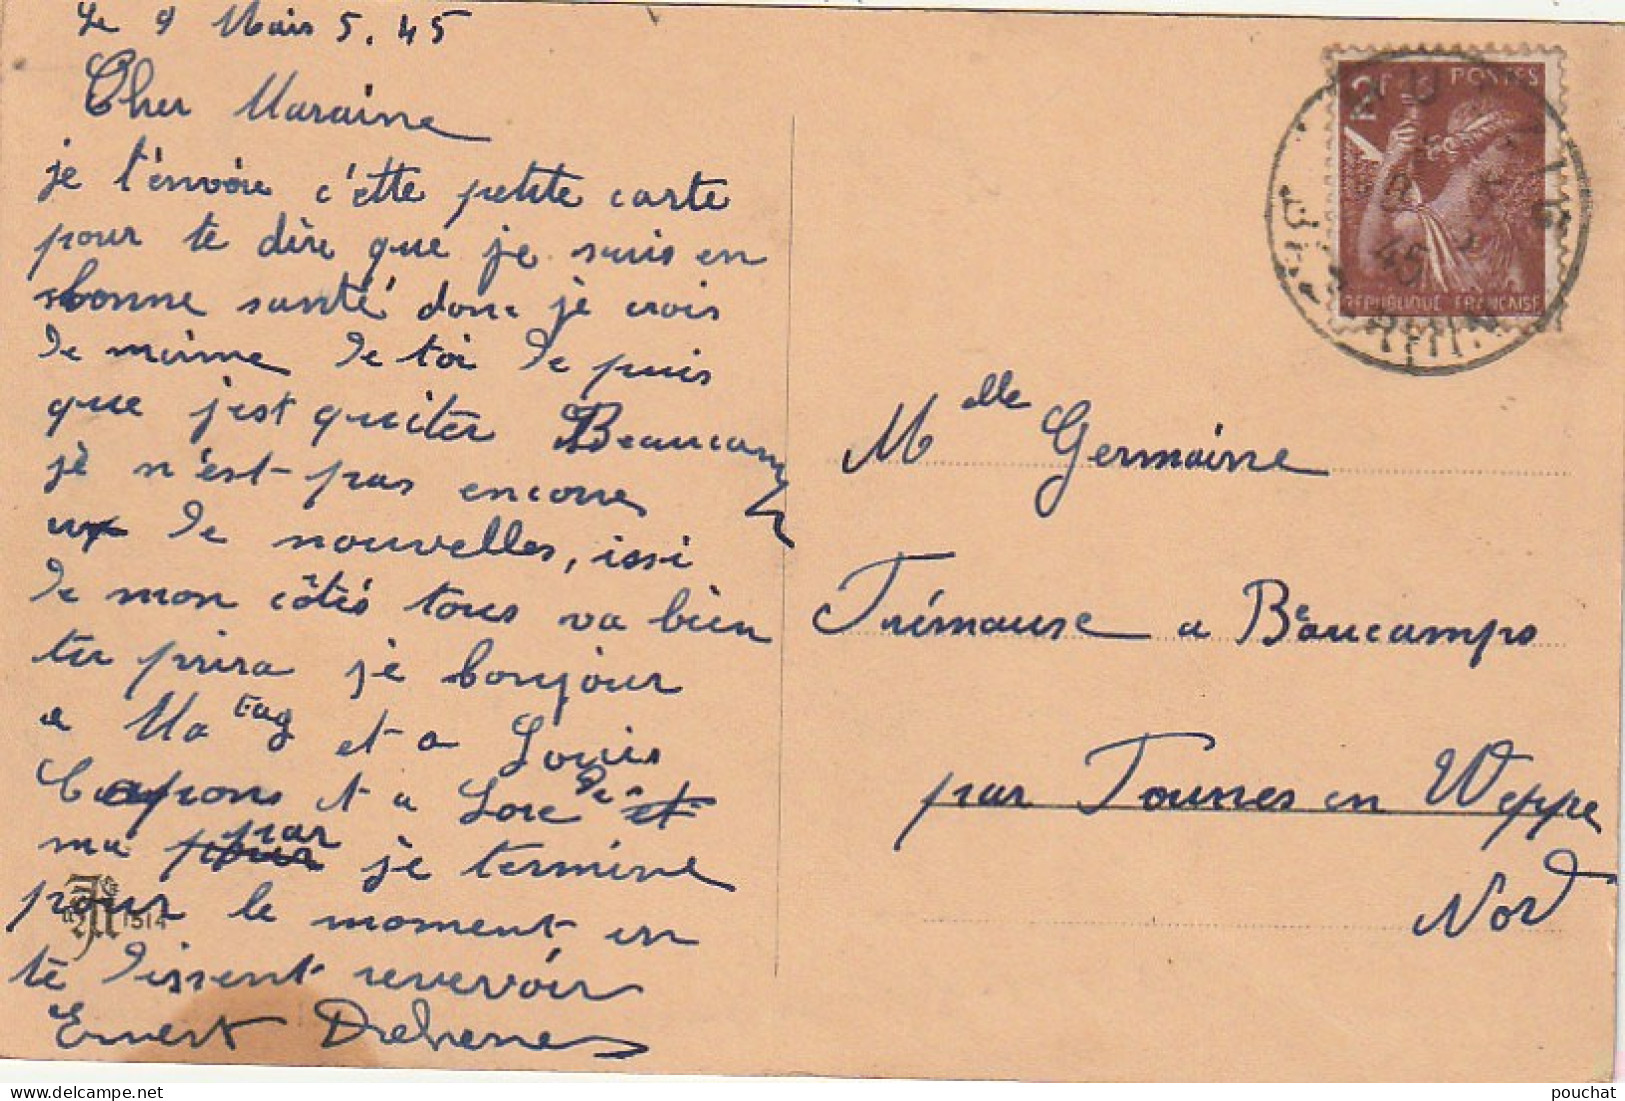 Le 9 Mais 5. 45
Cher Maraine
je t'envoie c'ette petite carte
pour te dire que je suis en
bonne santé donc je crois
de maime de toi de puis
que j'est quiter Beaucamp
je n'est pas encore
de nouvelles, issi
de mon côtés tous va bien
tu prira je bonjour
a Ma tag et a Louis
Capons et a
ma par je termine
pour le moment en
te dissent revevoir
Ernest
1514
2F POSTES
REPUBLIQUE FRANÇAISE
45
RHIN
Melle Germaine
Trémause a Beaucamps
par Tounes en Weppe
Nord
pouchat